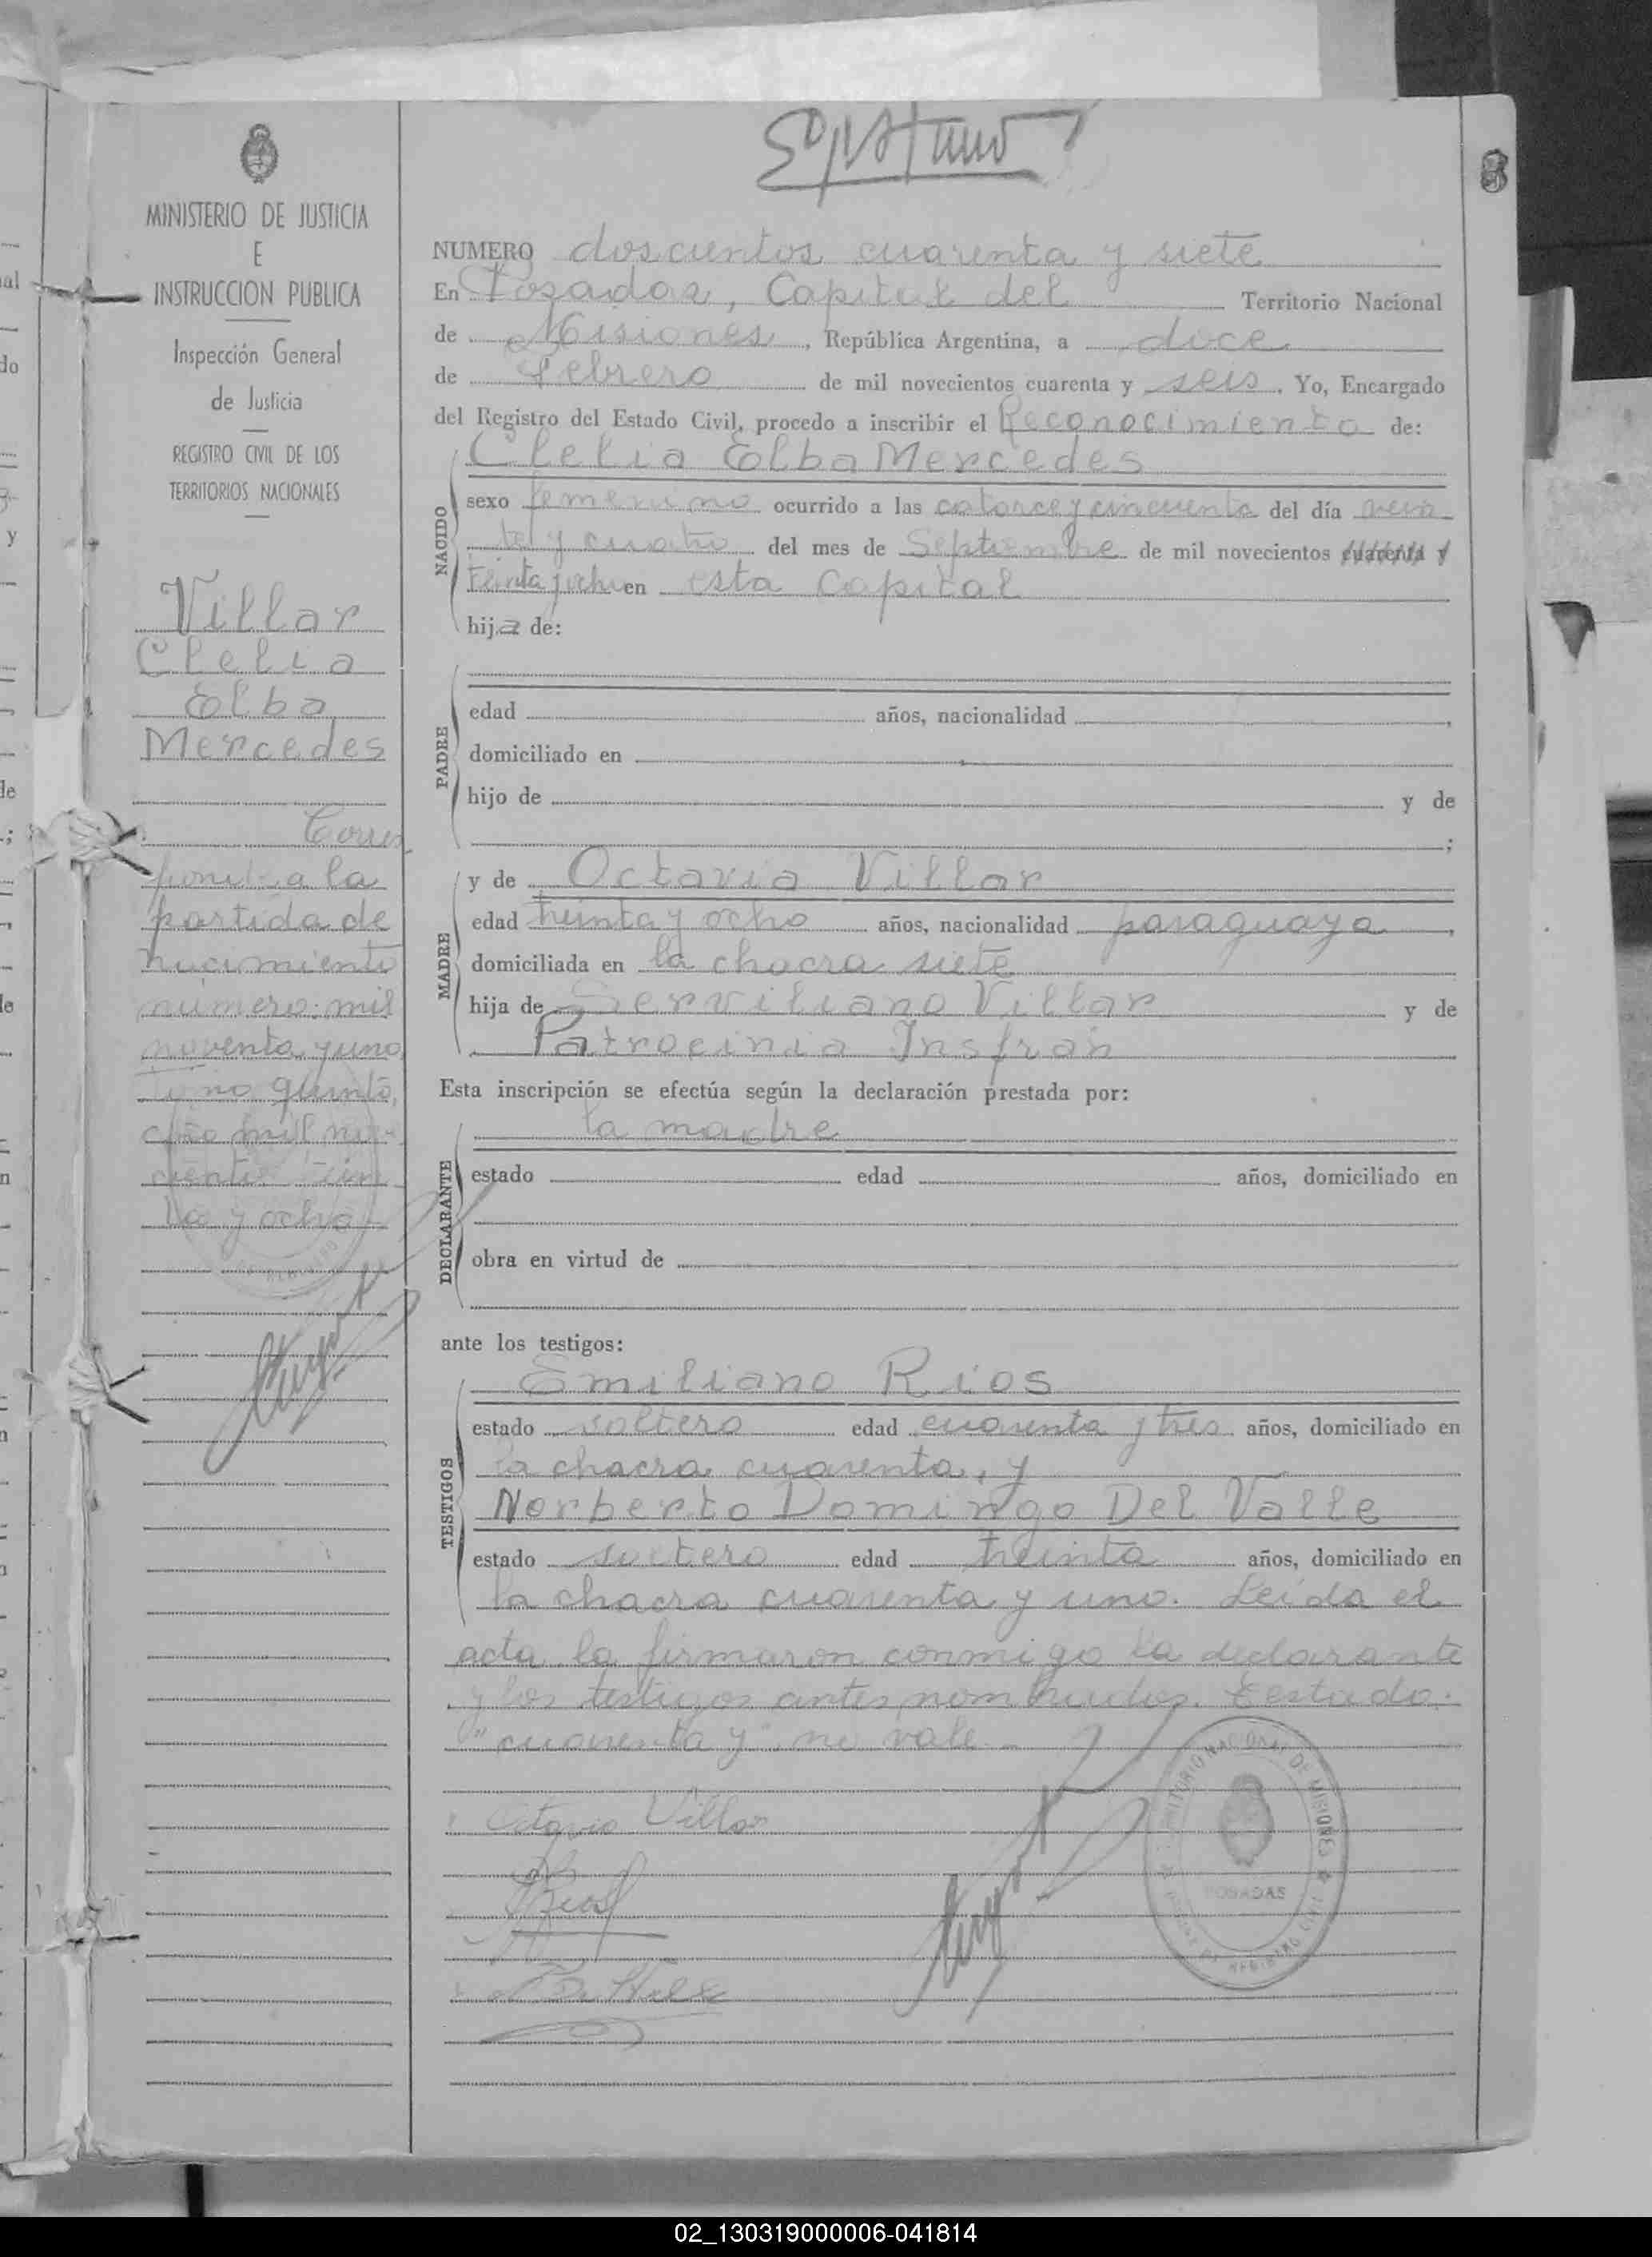 MINISTERIO DE JUSTICIA
E
INSTRUCCION PUBLICA
Inspección General
de Justicia
REGISTRO CIVIL DE LOS
TERRITORIOS NACIONALES
Villar
Clelia
Elba
Mercedes
Corres
ponde a la
partida de
nacimiento
número: mil
noventa y uno
tomo quinto,
año mil nove-
cientos trein
ta y ocho
8
NUMERO doscientos cuarenta y siete
En Posadas, Capital del Territorio Nacional
de Misiones, República Argentina, a doce
de Febrero de mil novecientos cuarenta y seis. Yo, Encargado
del Registro del Estado Civil, procedo a inscribir el Reconocimiento de:
Clelia Elba Mercedes
NACIDO
sexo femenino ocurrido a las catorce y cincuenta del día vein
te y cuatro del mes de Septiembre de mil novecientos cuarenta y
treinta y ocho en esta Capital
hija de:
PADRE
edad años, nacionalidad ,
domiciliado en
hijo de y de
;
MADRE
y de Octavia Villar
edad treinta y ocho años, nacionalidad paraguaya,
domiciliada en la chacra siete
hija de Serviliano Villar y de
Patrocinia Insfrán
Esta inscripción se efectúa según la declaración prestada por:
la madre
DECLARANTE
estado edad años, domiciliado en
obra en virtud de
ante los testigos:
TESTIGOS
Emiliano Rios
estado soltero edad cuarenta y tres años, domiciliado en
la chacra cuarenta, y
Norberto Domingo Del Valle
estado soltero edad treinta años, domiciliado en
la chacra cuarenta y uno. Leída el
acta la firmaron conmigo la declarante
y los testigos antes nombrados. Testado:
"cuarenta y" no vale.-
Octavia Villar
TERRITORIO NACIONAL DE MISIONES
POSADAS
02_130319000006-041814